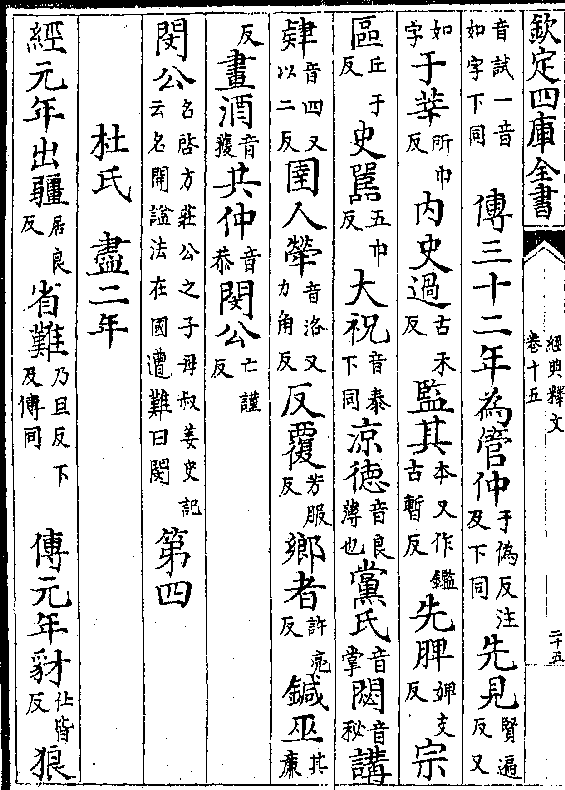 欽定四庫全書
經典釋文
卷十五
二十五
音試一音如字下同 傳三十二年為管仲于偽反注及下同先見賢遍反又
如字于莘所巾反內史過古禾反監其本又作鑑古暫反先脾婢支反宗
區丘于反史嚚五巾反大祝音泰下同凉德音良薄也黨氏音掌閟音祕講
肄音四又以二反圉人犖音洛又力角反反覆芳服反鄉者許亮反鍼巫其廉
反晝酒音獲共仲音恭閔公亡謹反
閔公名啓方莊公之子母叔姜史記云名開謚法在國遭難曰閔第四
杜氏 盡二年
經元年出疆居良反省難乃旦反下及傳同 傳元年豺仕皆反狼